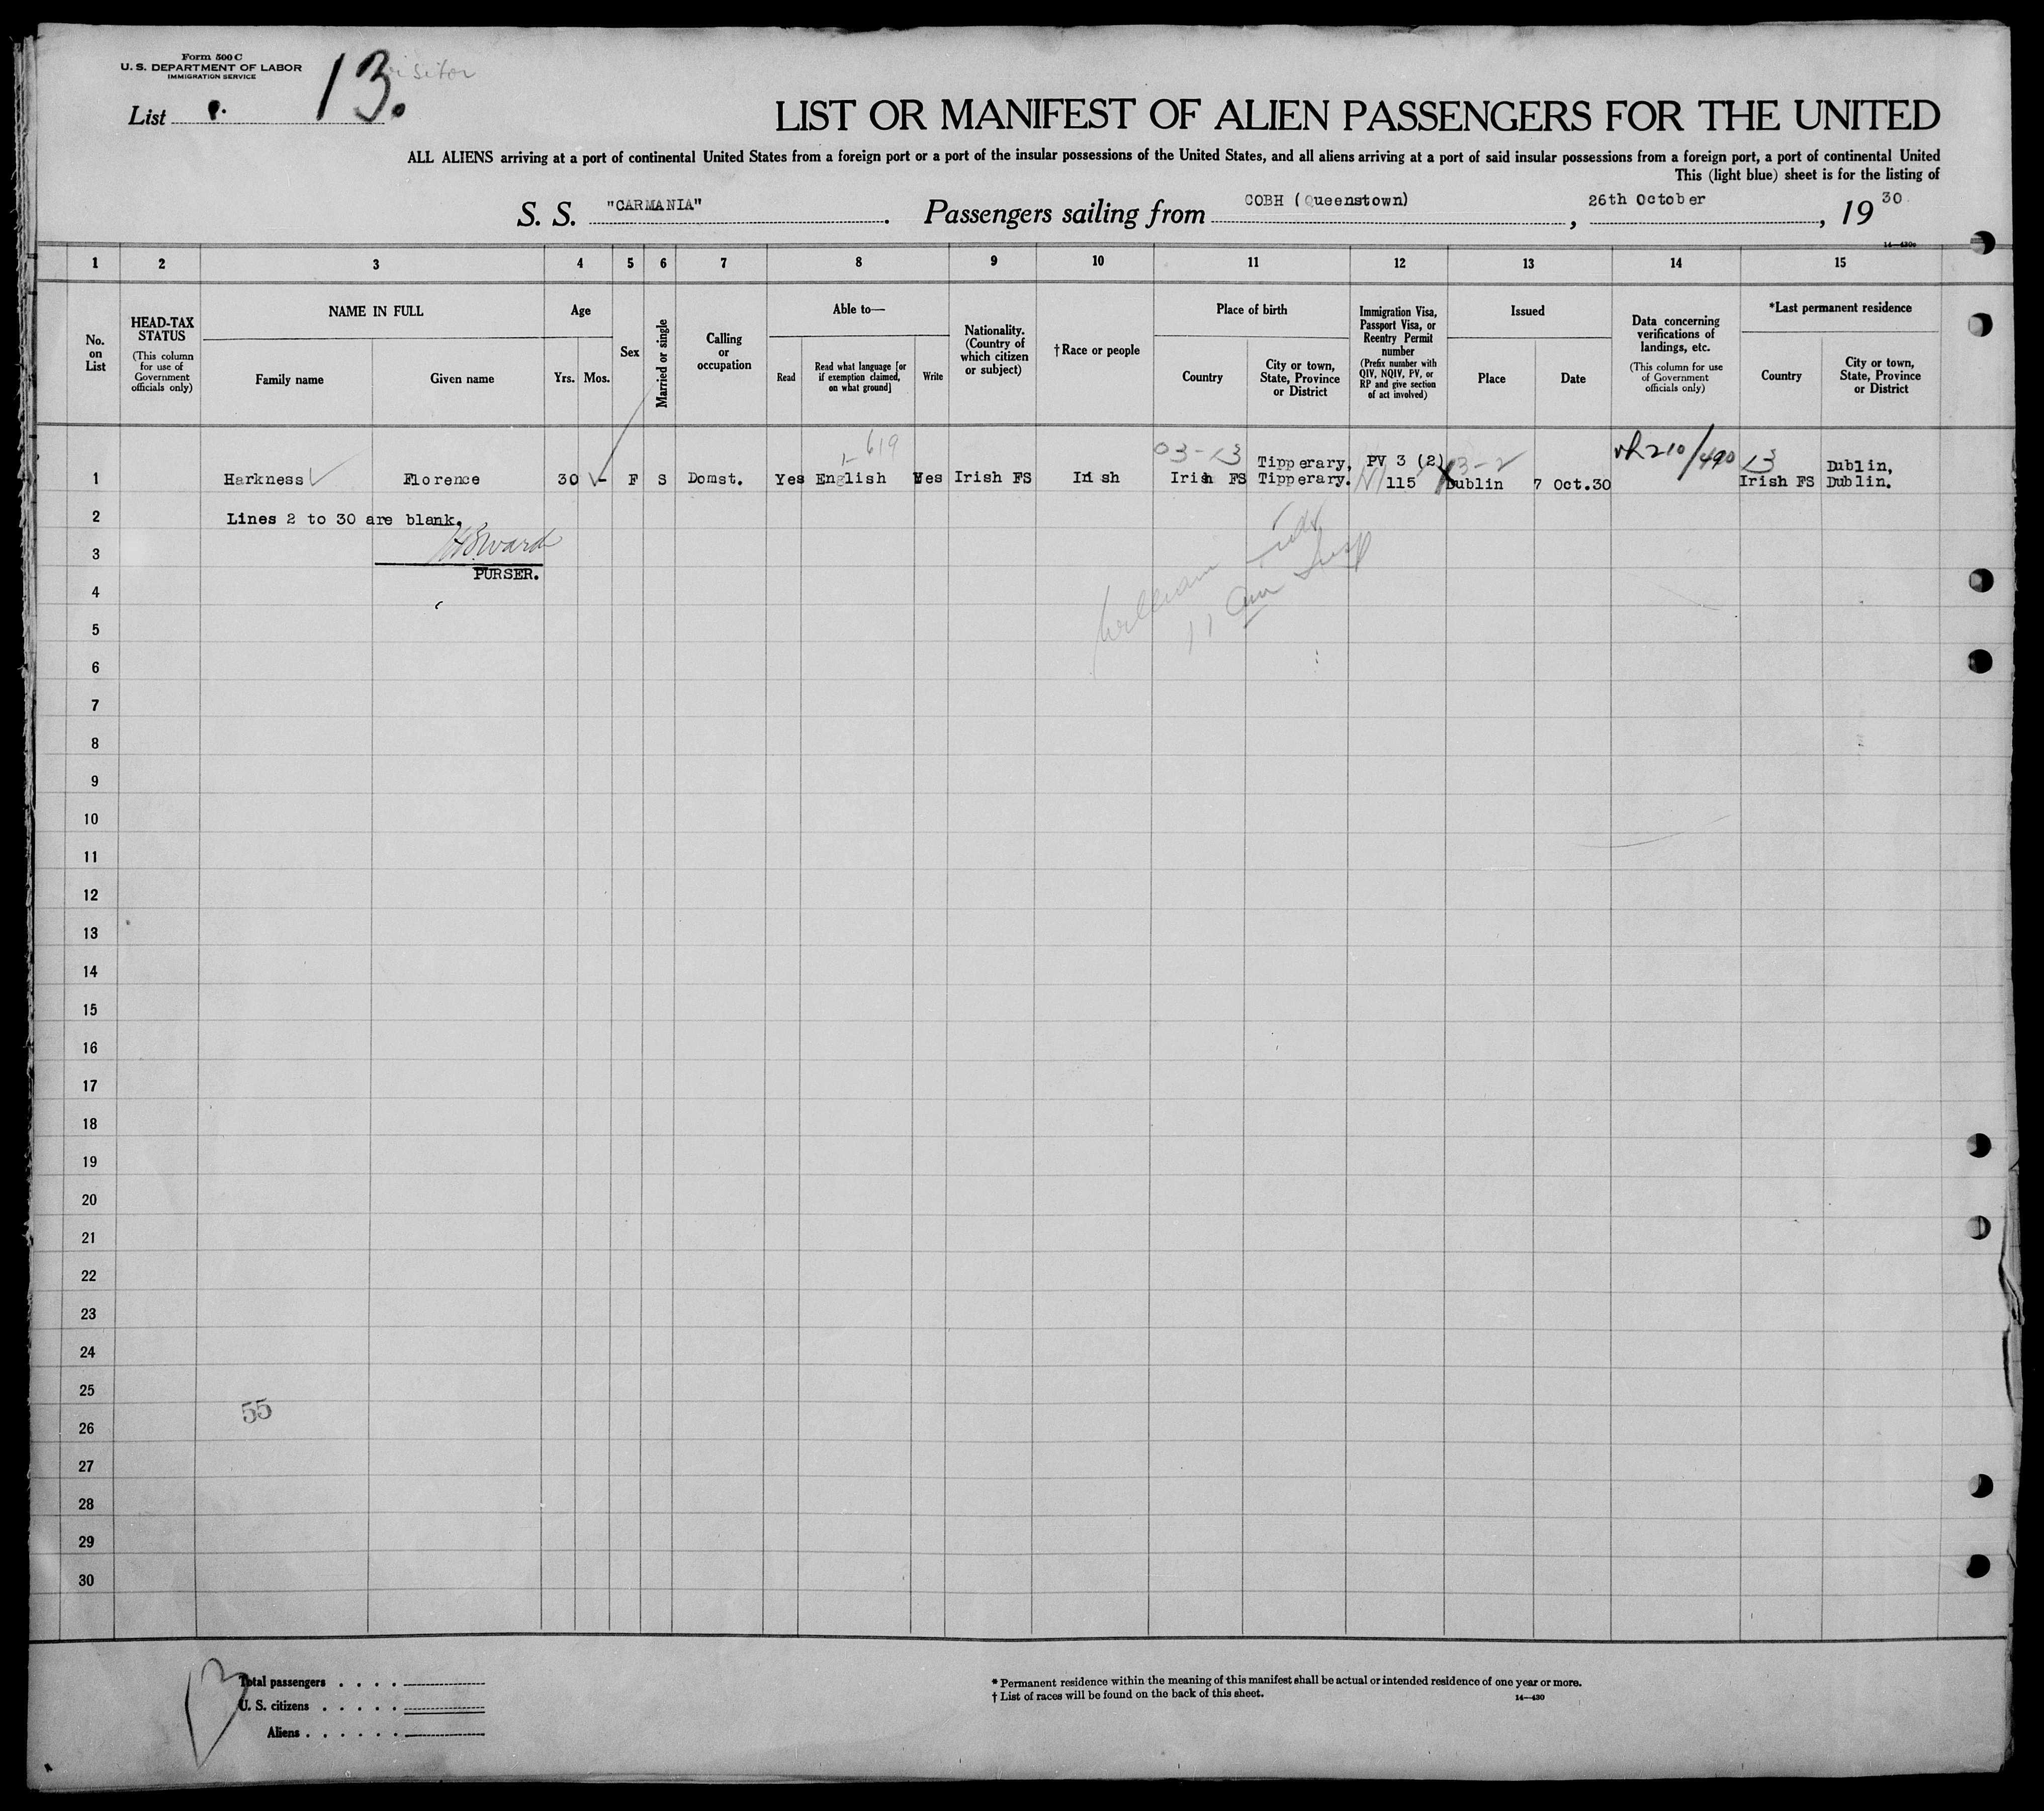 Form 500 C
U. S. DEPARTMENT OF LABOR
IMMIGRATION SERVICE
visitor
List 13.
LIST OR MANIFEST OF ALIEN PASSENGERS FOR THE UNITED
ALL ALIENS arriving at a port of continental United States from a foreign port or a port of the insular possessions of the United States, and all aliens arriving at a port of said insular possessions from a foreign port, a port of continental United
This (light blue) sheet is for the listing of
S. S. "CARMANIA". Passengers sailing from COBH (Queenstown), 26th October, 19 30
1 2 3 4 5 6 7 8 9 10 11 12 13 14 15
No. on List
HEAD-TAX STATUS
(This column for use of Government officials only)
NAME IN FULL
Family name
Given name
Age
Yrs. Mos.
Sex
Married or single
Calling or occupation
Able to—
Read
Read what language [or if exemption claimed, on what ground]
Write
Nationality. (Country of which citizen or subject)
†Race or people
Place of birth
Country
City or town, State, Province or District
Immigration Visa, Passport Visa, or Reentry Permit number
(Prefix number with QIV, NQIV, PV, or RP and give section of act involved)
Issued
Place
Date
Data concerning verifications of landings, etc.
(This column for use of Government officials only)
*Last permanent residence
Country
City or town, State, Province or District
619
03-13
Tipperary, PV 3 (2) 13-2 210/490 13 Dublin,
1 Harkness Florence 30 - F S Domst. Yes English Yes Irish FS Irish Irish FS Tipperary. 115 Dublin 7 Oct.30 Irish FS Dublin.
2 Lines 2 to 30 are blank.
3
PURSER.
4
5
6
7
8
9
10
11
12
13
14
15
16
17
18
19
20
21
22
23
24
25
55
26
27
28
29
30
13
Total passengers
U. S. citizens
Aliens
* Permanent residence within the meaning of this manifest shall be actual or intended residence of one year or more.
† List of races will be found on the back of this sheet.
14—430